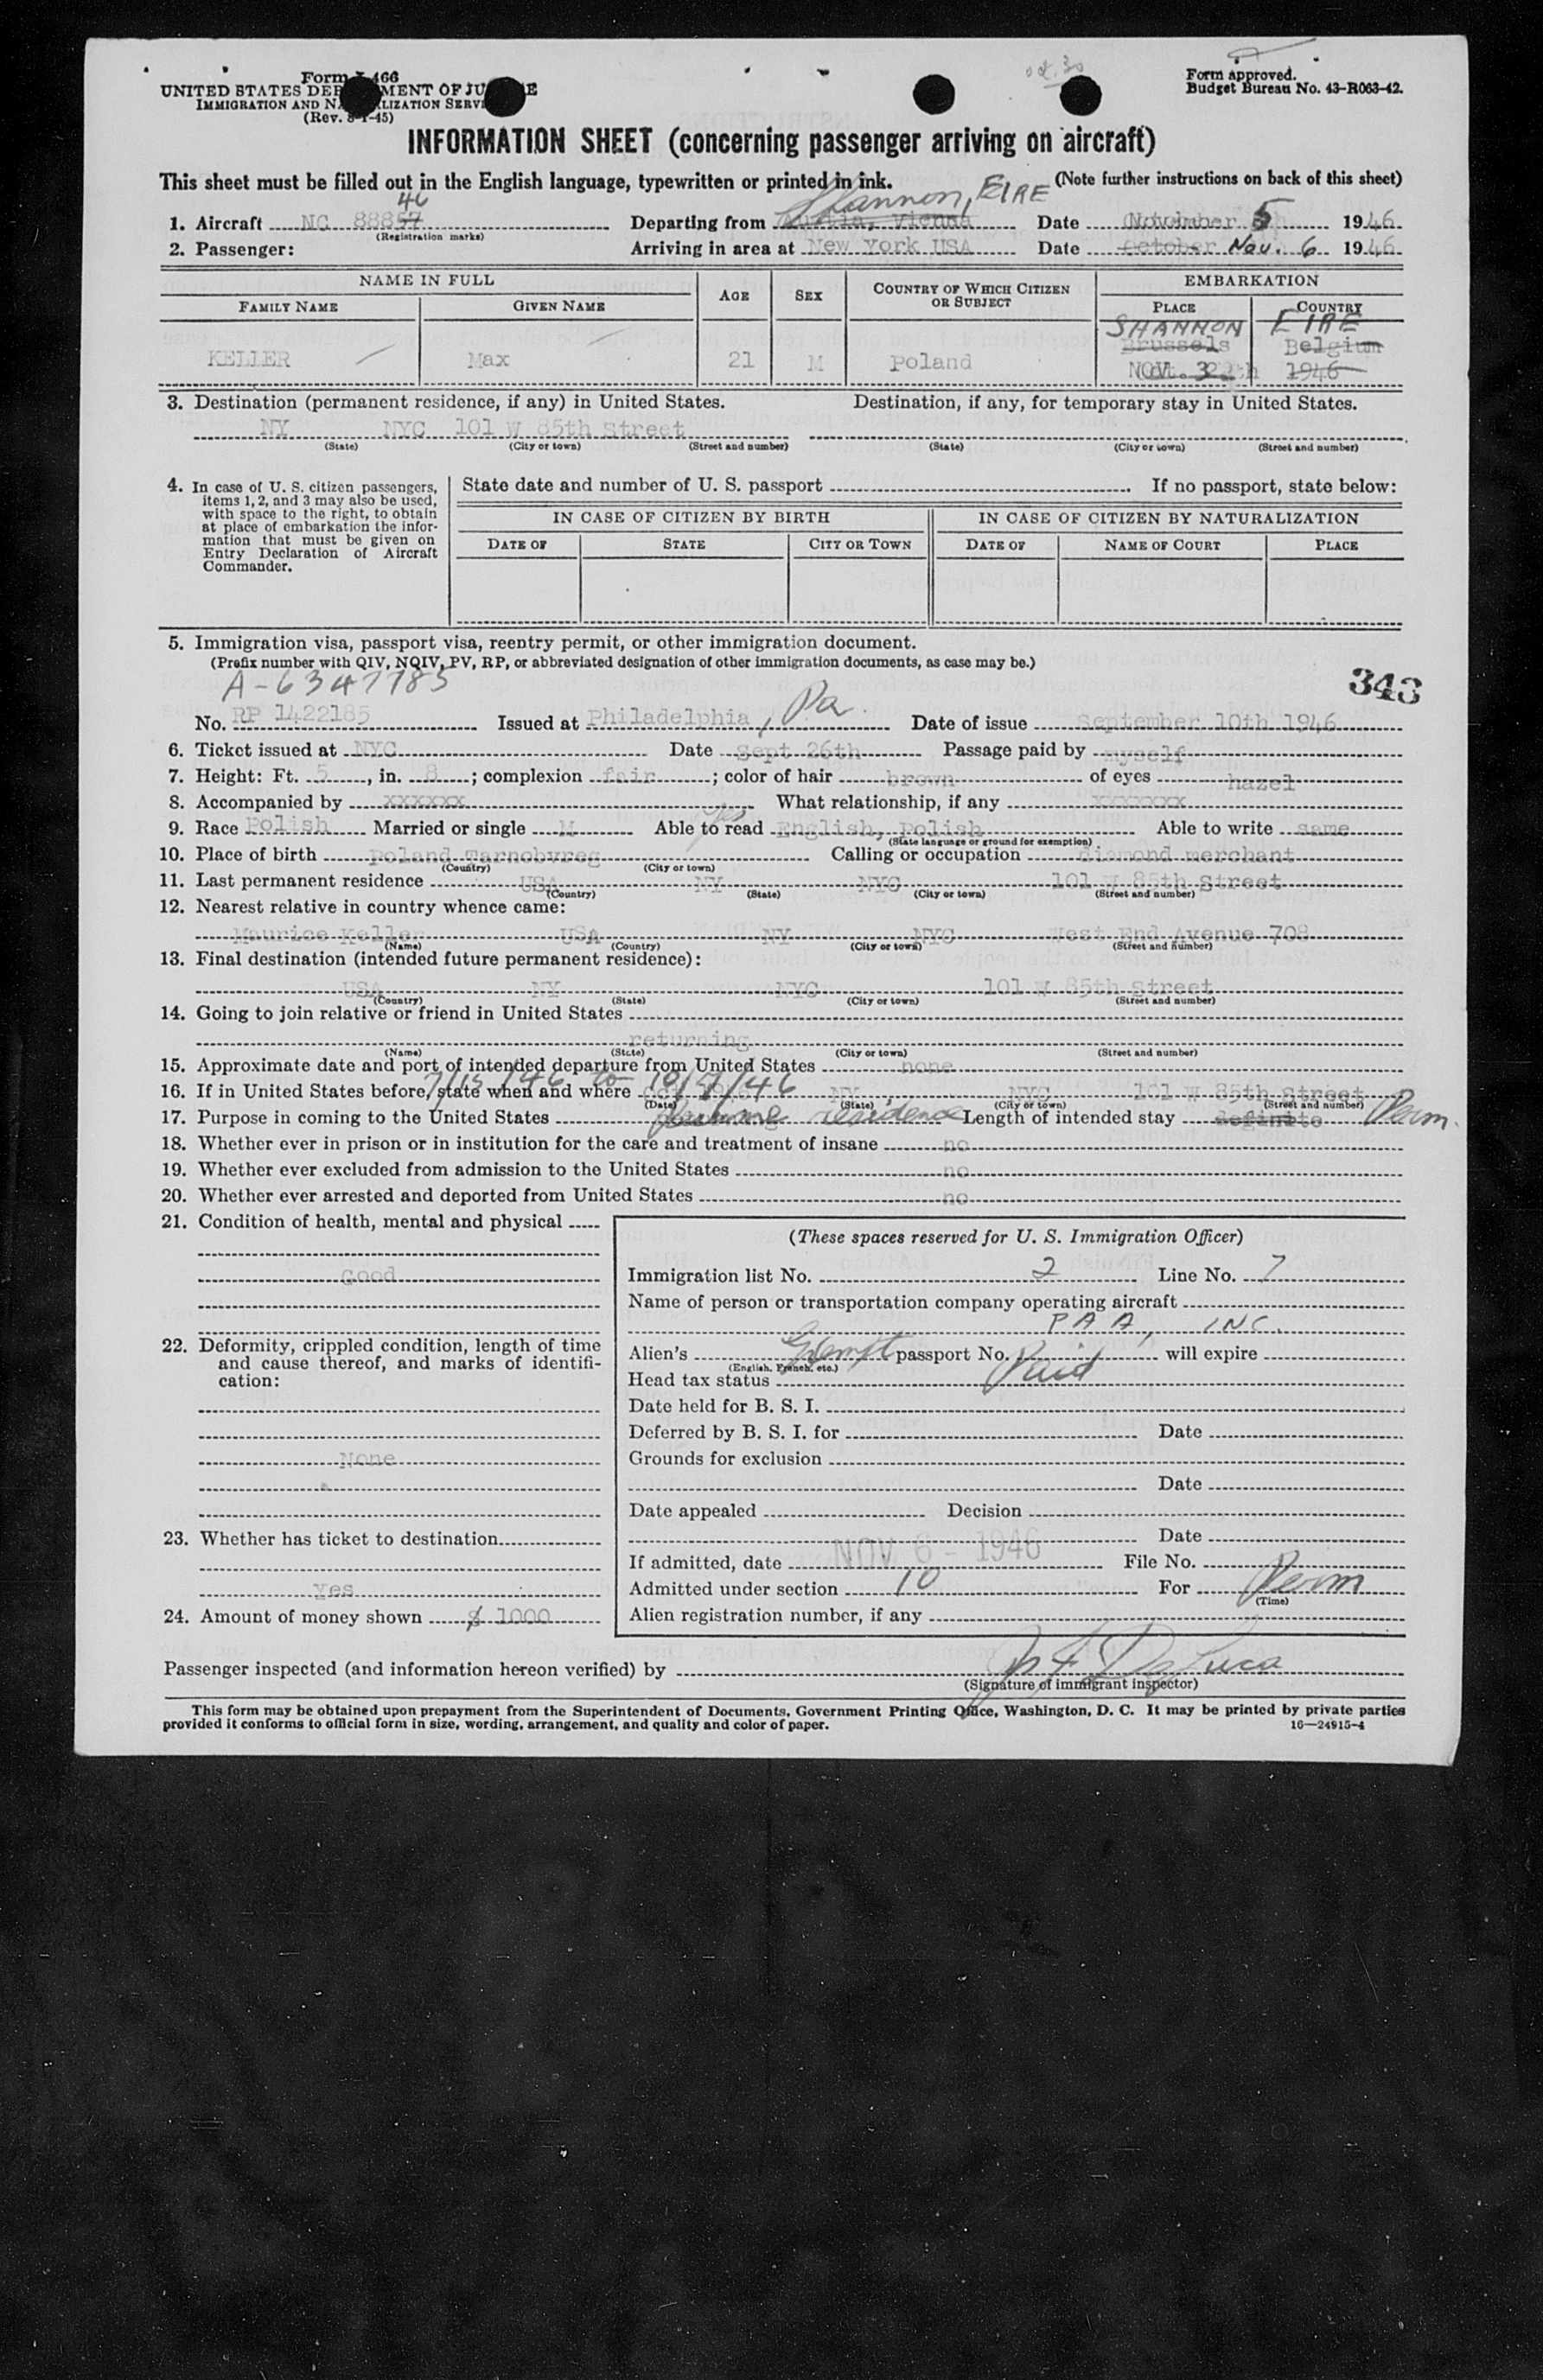 Form I-466
UNITED STATES DEPARTMENT OF JUSTICE
IMMIGRATION AND NATURALIZATION SERVICE
(Rev. 8-1-45)
Form approved.
Budget Bureau No. 43-R063-42.
INFORMATION SHEET (concerning passenger arriving on aircraft)
This sheet must be filled out in the English language, typewritten or printed in ink. (Note further instructions on back of this sheet)
46 Shannon, EIRE
1. Aircraft NC 88857 Departing from Austria, Vienna Date November 5 1946
(Registration marks)
2. Passenger: Arriving in area at New York USA Date October Nov. 6 1946
NAME IN FULL AGE SEX COUNTRY OF WHICH CITIZEN OR SUBJECT EMBARKATION
FAMILY NAME GIVEN NAME PLACE COUNTRY
SHANNON EIRE
KELLER Max 21 M Poland Brussels Belgium
NOV. 3 1946
3. Destination (permanent residence, if any) in United States. Destination, if any, for temporary stay in United States.
NY NYC 101 W 85th Street
(State) (City or town) (Street and number) (State) (City or town) (Street and number)
4. In case of U. S. citizen passengers, items 1, 2, and 3 may also be used, with space to the right, to obtain at place of embarkation the information that must be given on Entry Declaration of Aircraft Commander.
State date and number of U. S. passport If no passport, state below:
IN CASE OF CITIZEN BY BIRTH IN CASE OF CITIZEN BY NATURALIZATION
DATE OF STATE CITY OR TOWN DATE OF NAME OF COURT PLACE
5. Immigration visa, passport visa, reentry permit, or other immigration document.
(Prefix number with QIV, NQIV, PV, RP, or abbreviated designation of other immigration documents, as case may be.)
343
A-6347785
No. RP 1422185 Issued at Philadelphia, Pa. Date of issue September 10th 1946
6. Ticket issued at NYC Date Sept 26th Passage paid by myself
7. Height: Ft. 5, in. 8; complexion fair; color of hair brown of eyes hazel
8. Accompanied by xxxxxx What relationship, if any xxxxxxx
yes
9. Race Polish Married or single M Able to read English, Polish Able to write same
(State language or ground for exemption)
10. Place of birth Poland Tarnobvreg Calling or occupation diamond merchant
(Country) (City or town)
11. Last permanent residence USA NY NYC 101 W 85th Street
(Country) (State) (City or town) (Street and number)
12. Nearest relative in country whence came:
Maurice Keller USA NY NYC West End Avenue 708
(Name) (Country) (City or town) (Street and number)
13. Final destination (intended future permanent residence):
USA NY NYC 101 W 85th Street
(Country) (State) (City or town) (Street and number)
14. Going to join relative or friend in United States
returning
(Name) (State) (City or town) (Street and number)
15. Approximate date and port of intended departure from United States none
7/15/46 to 10/9/46
16. If in United States before, state when and where NY NYC 101 W 85th Street
(Date) (State) (City or town) (Street and number)
17. Purpose in coming to the United States residence Length of intended stay definite Perm.
18. Whether ever in prison or in institution for the care and treatment of insane no
19. Whether ever excluded from admission to the United States no
20. Whether ever arrested and deported from United States no
21. Condition of health, mental and physical
Good
22. Deformity, crippled condition, length of time and cause thereof, and marks of identification:
None
23. Whether has ticket to destination
Yes
24. Amount of money shown $ 1000
(These spaces reserved for U. S. Immigration Officer)
Immigration list No. 2 Line No. 7
Name of person or transportation company operating aircraft
PAA, INC.
Alien's Exempt passport No. will expire
(English, French, etc.)
Head tax status Paid
Date held for B. S. I.
Deferred by B. S. I. for Date
Grounds for exclusion
Date
Date appealed Decision
Date
If admitted, date NOV 6 - 1946 File No.
Admitted under section 10 For Perm
(Time)
Alien registration number, if any
Passenger inspected (and information hereon verified) by DeLuca
(Signature of immigrant inspector)
This form may be obtained upon prepayment from the Superintendent of Documents, Government Printing Office, Washington, D. C. It may be printed by private parties
provided it conforms to official form in size, wording, arrangement, and quality and color of paper. 16—24915-4